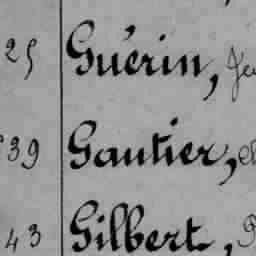 25 Guérin,
39 Gautier,
43 Gilbert,